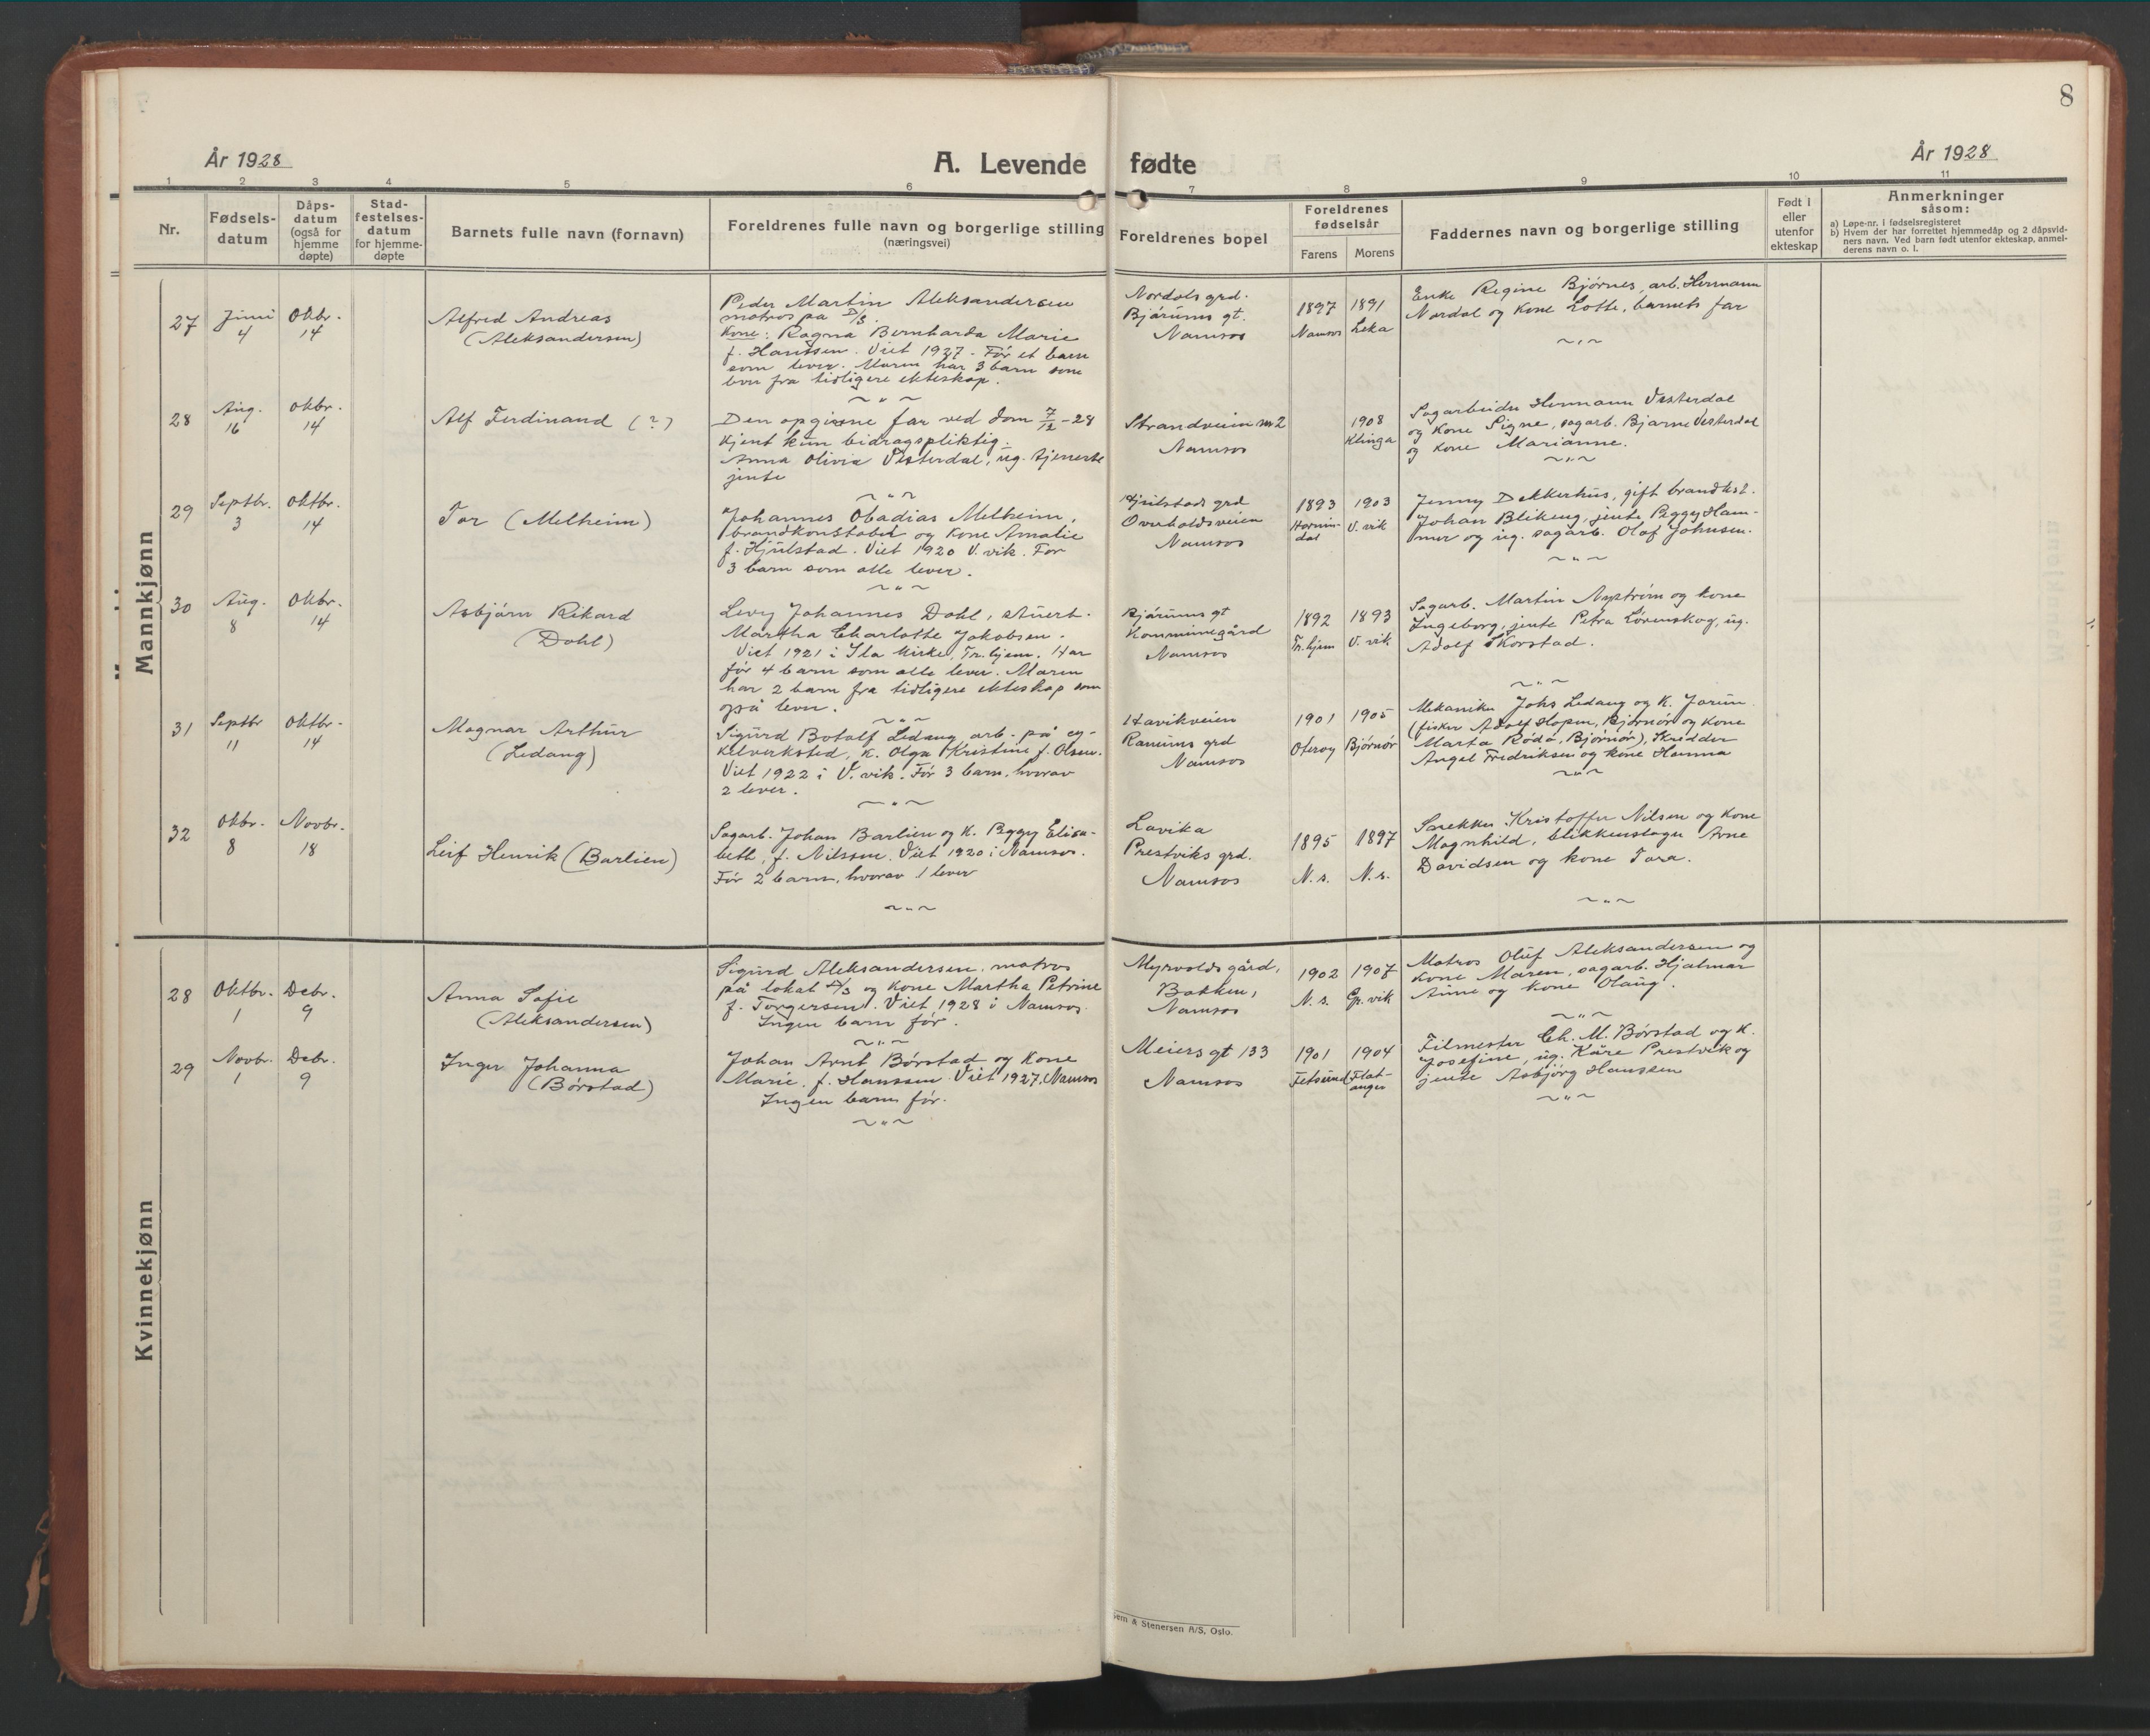 8
År 1928
A. Levende fødte
År 1928
1 2 3 4 5 6 7 8 9 10 11
Nr.
Fødsels-
datum
Dåps-
datum
(også for
hjemme
døpte)
Stad-
festelses-
datum
for hjemme-
døpte
Barnets fulle navn (fornavn)
Foreldrenes fulle navn og borgerlige stilling
(næringsvei)
Foreldrenes bopel
Foreldrenes
fødselsår
Farens Morens
Faddernes navn og borgerlige stilling
Født i
eller
utenfor
ekteskap
Anmerkninger
såsom:
a) Løpe-nr. i fødselsregisteret
b) Hvem der har forrettet hjemmedåp og 2 dåpsvid-
ners navn. Ved barn født utenfor ekteskap, anmel-
derens navn o. l.
Mannkjønn
27
Juni
4
Oktbr.
14
Alfred Andreas
(Aleksandersen)
Peder Martin Aleksandersen
matros på D/S.
Kone: Ragna Bernharda Marie
f. Hanssen. Viet 1927. Før et barn
som lever. Moren har 3 barn som
lever fra tidligere ekteskap.
Nordals grd.
Bjørums gt.
Namsos
1897
Namsos
1891
Leka
Enke Regine Bjørnes, arb. Hermann
Nordal og kone Lotte, barnets far
28
Aug.
16
Oktbr.
14
Alf Ferdinand (?)
Den opgivne far ved dom 7/12-28
kjent kun bidragspliktig.
Anna Olivia Vesterdal, ug. tjeneste
jente
Strandveien nr 2
Namsos
1908
Klinga
Sagarbeider Hermann Vesterdal
og kone Signe, sagarb. Bjarne Vesterdal
og kone Marianne.
29
Septbr.
3
Oktbr.
14
Tor (Melheim)
Johannes Obadias Melheim,
brandkonstabel og kone Amalie
f. Hjulstad. Viet 1920 V. vik. Før
3 barn som alle lever.
Hjulstads grd
Overhaldsveien
Namsos
1893
Hornin-
dal
1903
V. vik
Jenny Dekkerhus, gift brandkst.
Johan Blikeng, jente Peggy Ham-
mer og ug. sagarb. Olaf Johnsen.
30
Aug.
8
Oktbr.
14
Asbjørn Rikard
(Dahl)
Levy Johannes Dahl, stuert.
Martha Charlotte Jakobsen.
Viet 1921 i Ila kirke, Tr.hjem. Har
før 4 barn som alle lever. Moren
har 2 barn fra tidligere ekteskap som
også lever.
Bjørums gt
Kommunegård
Namsos
1892
Tr.hjem
1893
V. vik
Sagarb. Martin Nystrøm og kone
Ingeborg, jente Petra Lövenskog, ug.
Adolf Skorstad.
31
Septbr
11
Oktbr.
14
Magnar Arthur
(Ledang)
Sigurd Botolf Ledang, arb. på cy-
kelverksted, k. Olga Kristine f. Olsen.
Viet 1922 i V. vik. Før 3 barn, hvorav
2 lever.
Havikveien
Ranums grd
Namsos
1901
Oterøy
1905
Bjørnør
Mekaniker Johs Ledang og k. Jorun
(fisker Adolf Hopen, Bjørnør og kone
Marta Rödö, Bjørnør), Skredder
Angel Fredriksen og kone Hanna
32
Oktbr.
8
Novbr.
18
Leif Henrik (Barlien)
Sagarb. Johan Barlien og k. Peggy Elisa-
beth, f. Nilssen. Viet 1920 i Namsos.
Før 2 barn, hvorav 1 lever
Lavika
Prestviks grd.
Namsos
1895
N. s.
1897
N. s.
Snekker Kristoffer Nilsen og kone
Magnhild, blikkenslager Arne
Davidsen og kone Tora.
Kvinnekjønn
28
Oktbr.
1
Debr.
9
Anna Sofie
(Aleksandersen)
Sigurd Aleksandersen, matros
på lokal D/S og kone Martha Petrine
f. Torgersen. Viet 1928 i Namsos.
Ingen barn før.
Myrvolds gård,
Bakken,
Namsos
1902
N. s.
1907
Gr. vik
Matros Oluf Aleksandersen og
kone Maren, sagarb. Hjalmar
Aune og kone Olaug.
29
Novbr.
1
Debr.
9
Inger Johanna
(Børstad)
Johan Arnt Børstad og kone
Marie f. Hanssen. Viet 1927, Namsos
Ingen barn før.
Meiers gt 133
Namsos
1901
Fetsund
1904
Flat-
anger
Filmester Ch. M. Børstad og k.
Josefine, ug. Kåre Prestvik og
jente Asbjørg Hanssen
Sem & Stenersen A/S, Oslo.